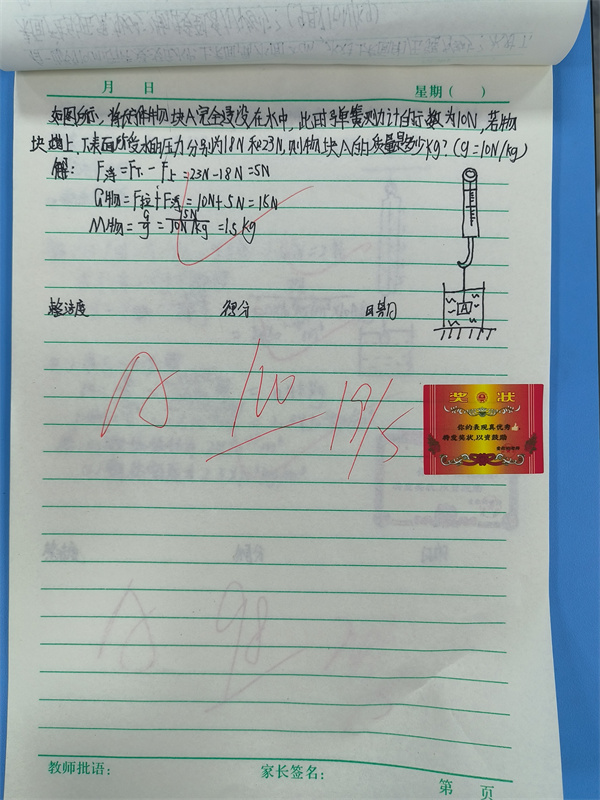 月 日 星期( )
如图所示,将长方体物块A完全浸没在水中,此时弹簧测力计的示数为10N,若物
块A上、下表面所受水的压力分别为18N和23N,则物块A的质量是多少kg?(g=10N/kg)
解: F浮=F下-F上=23N-18N=5N
G物=F拉+F浮=10N+5N=15N
M物=G/g=15N/10N/kg=1.5kg
A
整洁度 得分 日期
A 100 19/5
奖 状
你的表现真优秀
特发奖状,以资鼓励
A 98
教师批语: 家长签名:
第 页